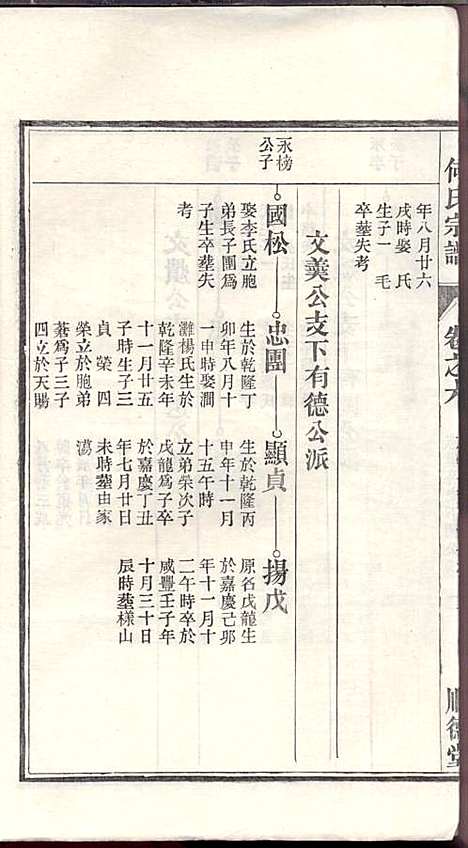 何氏宗譜
卷之六
順德堂
年八月廿六
戌時娶 氏
生子一 毛
卒塟失考
文美公支下有德公派
永榜
公子
國松
娶李氏立胞
弟長子團爲
子生卒塟失
考
忠團
生於乾隆丁
卯年八月十
一申時娶澗
灘楊氏生於
乾隆辛未年
十一月廿五
子時生子三
貞 榮 四
榮立於胞弟
爲子三子
四立於天賜
顯貞
生於乾隆丙
申年十一月
十五午時
立弟榮次子
戊龍爲子卒
於嘉慶丁丑
年七月廿日
未時塟由家
揚戊
原名戊龍生
於嘉慶己卯
年十一月十
二午時卒於
咸豐壬子年
十月三十日
辰時塟樣山